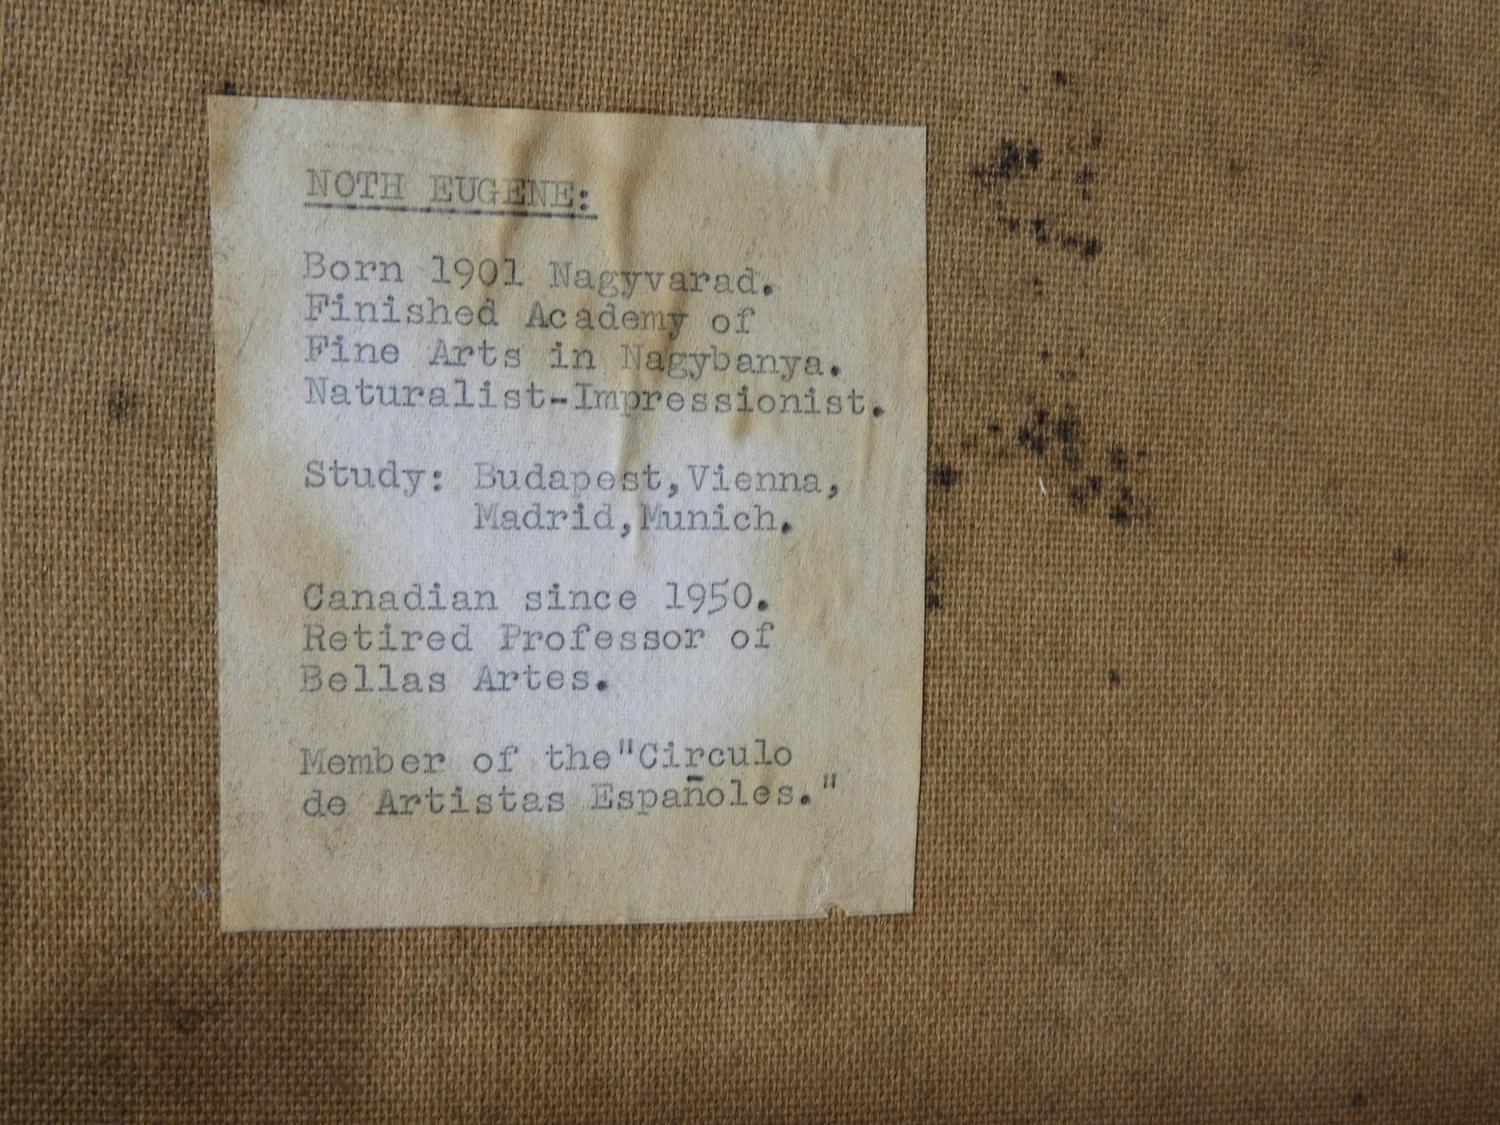 NOTH EUGENE:
Born 1901 Nagyvarad.
Finished Academy of
Fine Arts in Nagybanya.
Naturalist-Impressionist.
Study: Budapest,Vienna,
Madrid,Munich.
Canadian since 1950.
Retired Professor of
Bellas Artes.
Member of the"Circulo
de Artistas Españoles."